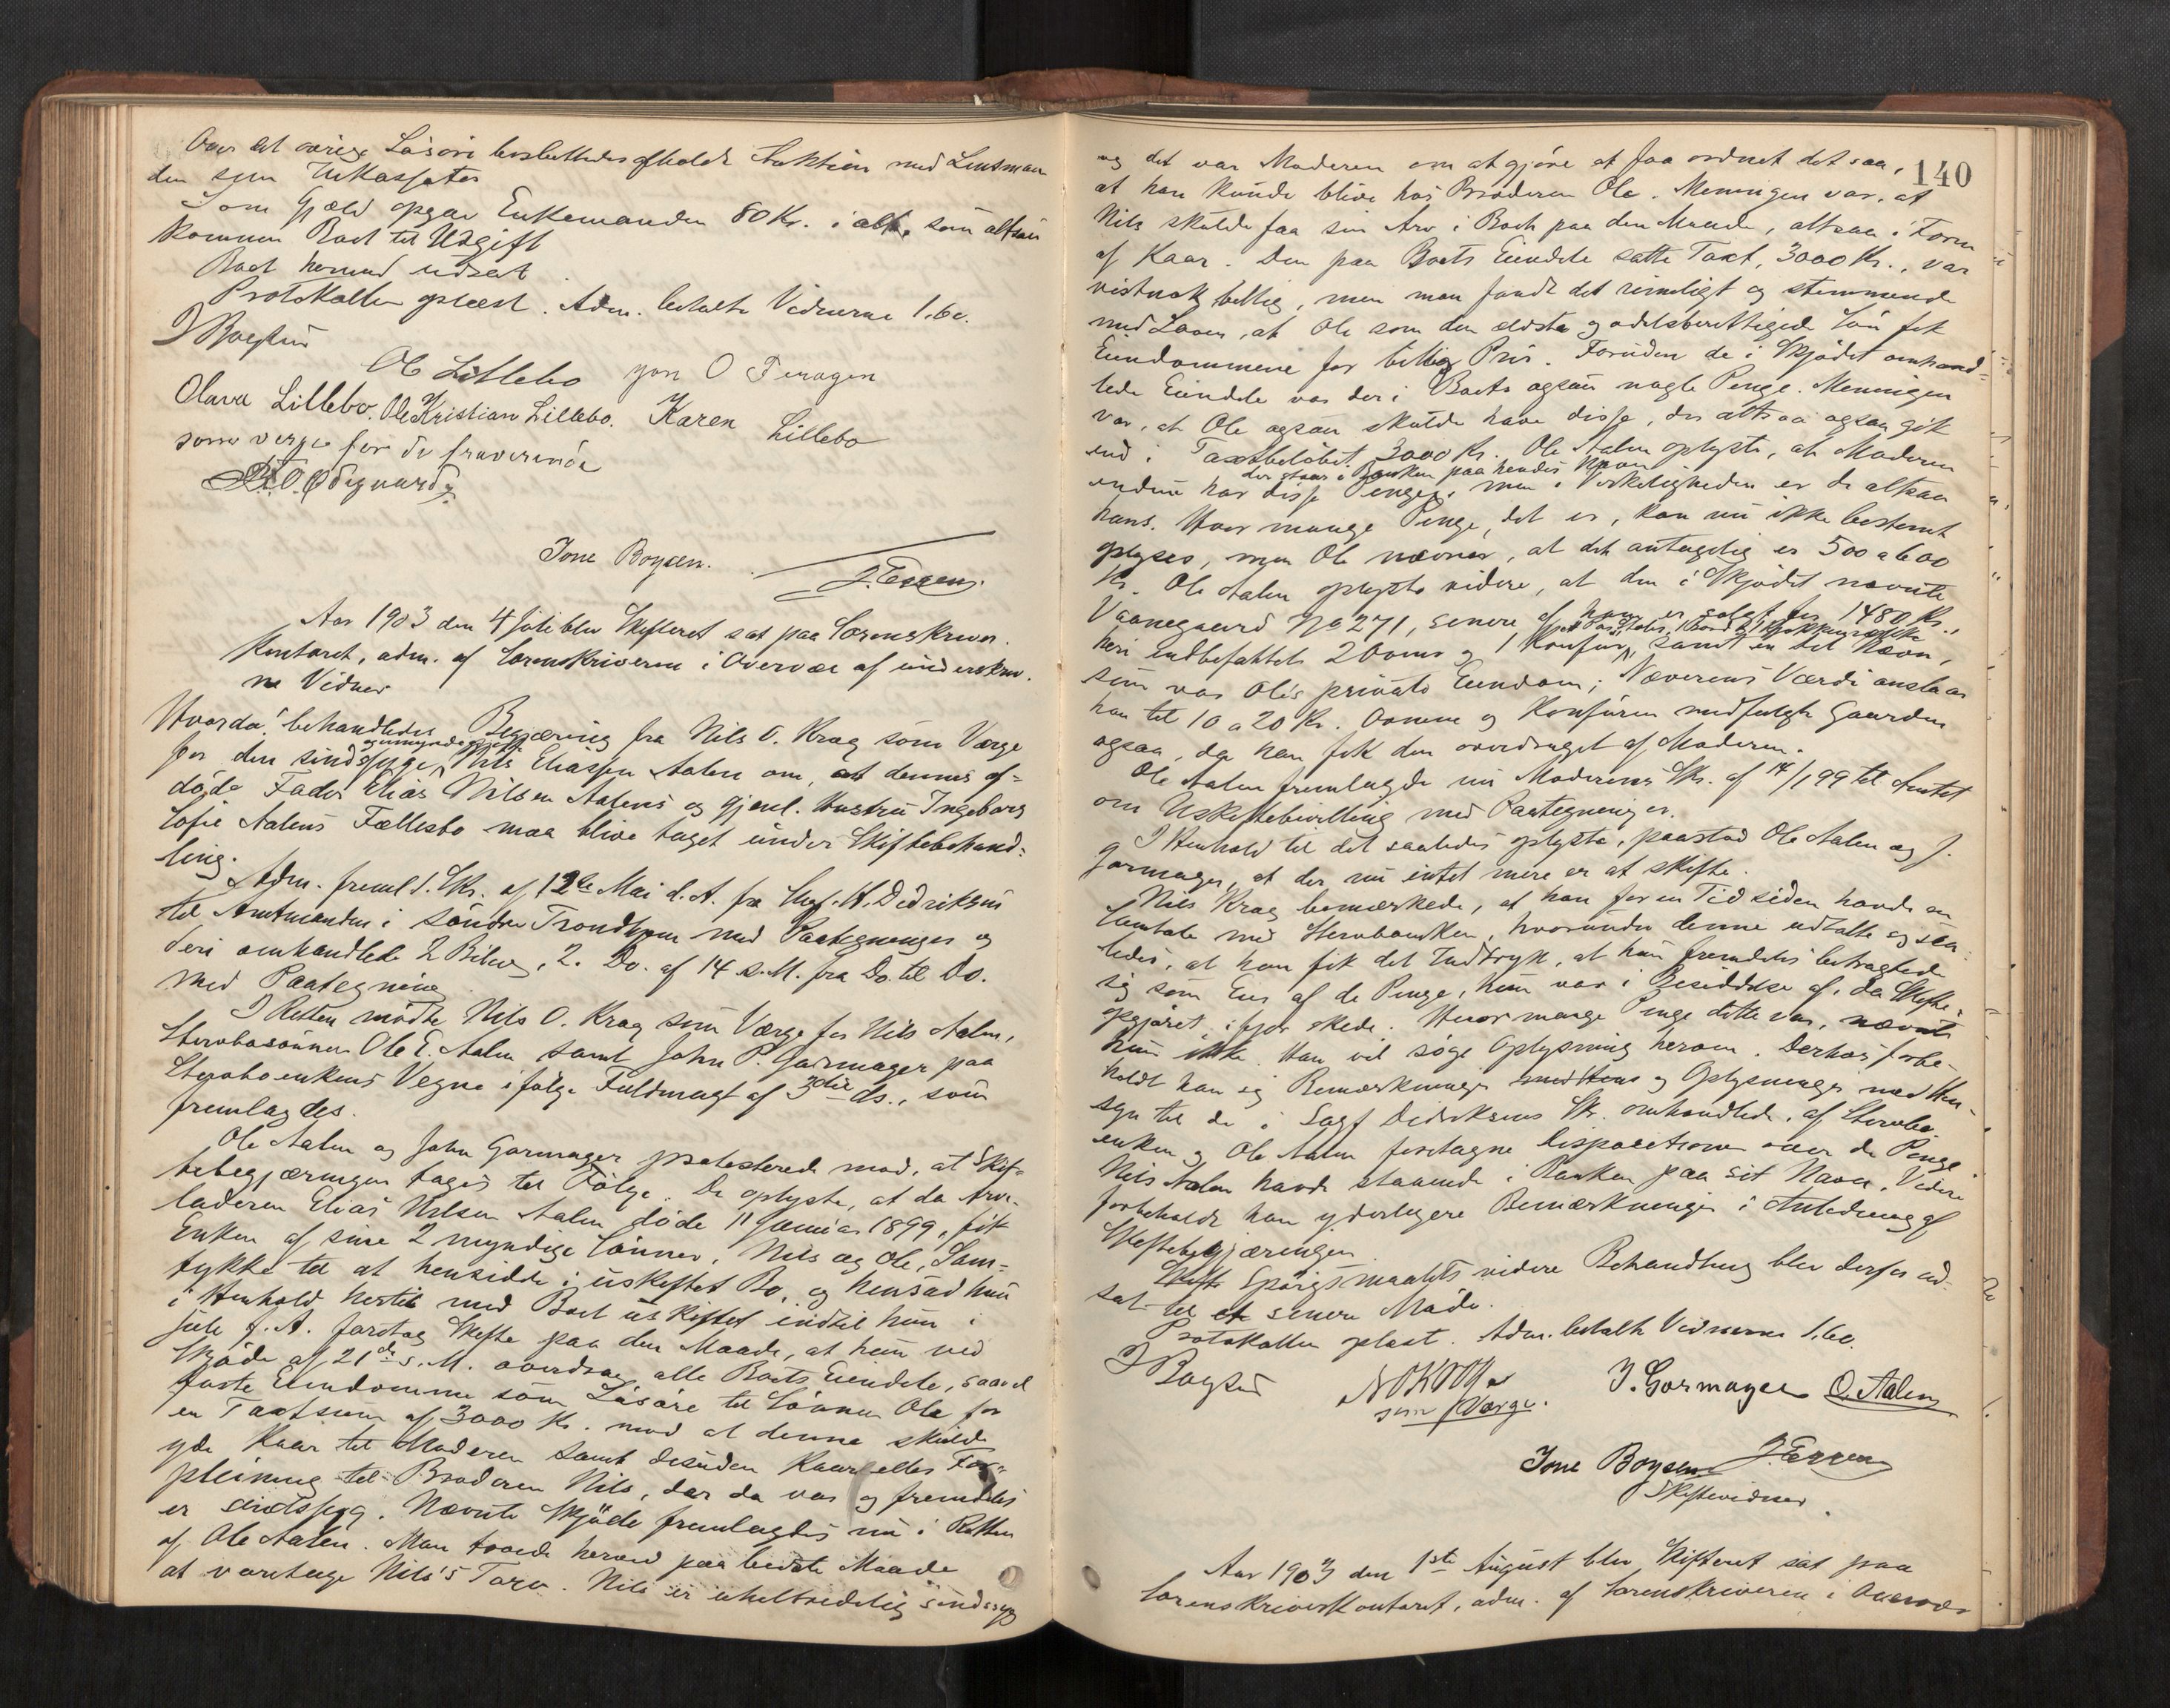 Over det øvrige Løsøre besluttedes afholdt Auktion med Lensman
den som Inkassator
Som Gjæld opgav Enkemanden 80 Kr. i alt, som altsaa
kommer Boet til Udgift
Boet hermed udsat.
Protokollen oplæst. Adm. betalte Vidnerne 1.60.
O Lillebo Jon O
Olava Lillebo. Ole Kristian Lillebo. Karen Lillebo
som verge for de fraverende
O. Ødegaard
Tone Boysen. J. Essen.
Aar 1903 den 4 Juli blev Skifteret sat paa Sorenskriver-
kontoret, adm. af Sorenskriveren i Overvær af underskrev-
ne Vidner
Hvorda! behandledes Begjæring fra Nils O. Krog som Værge
for den sindssyge, Nils Eliassen Aalen om, at dennes af-
døde Fader Elias Nilsen Aalens og gjenl. Hustru Ingeborg
Sofie Aalens Fællesbo maa blive taget under Skiftebehand-
ling.
Adm. freml. 1. Skr. af 12te Mai d. A. fra Sagf. H. Didriksen
til Amtmanden i Søndre Trondhjem med Paategninger og
deri omhandlede 2 Bilag, 2. Do. af 14 s. M. fra Do. til Do.
med Paategning
I Retten mødte Nils O. Krog som Værge for Nils Aalen,
Stervbosønnen Ole E. Aalen samt John P. Gormager paa
Stervboenkens Vegne ifølge Fuldmagt af 3die ds., som
fremlagdes.
Ole Aalen og John Gormager protesterede mod, at Skif-
tebegjæringen tages til Følge. De oplyste, at da Arve-
laderen Elias Nilsen Aalen døde 11 Januar 1899, fik
Enken af sine 2 myndige Sønner, Nils og Ole, Sam-
tykke til at hensidde i uskiftet Bo, og hensad hun
i Henhold hertil med Boet uskiftet indtil hun i
Juli f. A. foretog Skifte paa den Maade, at hun ved
Skjøde af 21de s. M. overdrog alle Boets Eiendele, saavel
faste Eiendomme som Løsøre til Sønnen Ole for
en Taxtsum af 3000 Kr. mod at denne skulde
yde Kaar til Moderen samt desuden Kaar eller For-
pleining til Broderen Nils, der da var og fremdeles
er sindssyg. Nævnte Skjøde fremlagdes nu i Retten
af Ole Aalen. Man troede herved paa bedste Maade
at varetage Nils's Tarv. Nils er uhelbredelig sindssyg
140
og det var Moderen om at gjøre at faa ordnet det saa,
at han kunde blive hos Broderen Ole. Meningen var, at
Nils skulde faa sin Arv i Boet paa den Maade, altsaa i Form
af Kaar. Den paa Boets Eiendele satte Taxt, 3000 Kr., var
vistnok billig, men man fandt det rimeligt og stemmende
med Loven, at Ole som den ældste og odelsberettigede Søn fik
Eiendommene for billig Pris. Foruden de i Skjødet omhand-
lede Eiendele var der i Boets ogsaa nogle Penge. Meningen
var, at Ole ogsaa skulde have disse, der altsaa ogsaa gik
ind i Taxtbeløbet 3000 Kr. Ole Aalen oplyste, at Moderen
der staar i Banken paa hendes Navn
endnu har disse Penge, men i Virkeligheden er de altsaa
hans. Hvor mange Penge, det er, kan nu ikke bestemt
oplyses, men Ole nævner, at det antagelig er 500 a 600
Kr. Ole Aalen oplyste videre, at den i Skjødet nævnte
Vaanegaard No 271, senere af ham er solgt for 1480 Kr.,
heri indbefattet 2 Ovne og 1 Komfur, samt en Del Næver,
som var Oles private Eiendom; Næverens Værdi anslaar
han til 10 a 20 Kr. Ovnene og Komfuren medfulgte Gaarden
ogsaa, da han fik den overdraget af Moderen.
Ole Aalen fremlagde nu Moderens Skr. af 14/1 99 til Amtet
om Uskiftebevilling med Paategninger.
I Henhold til det saaledes oplyste, paastod Ole Aalen og J.
Gormager, at der nu intet mere er at skifte.
Nils Krog bemærkede, at han for en Tid siden havde en
Samtale med Stervboenken, hvorunder denne udtalte sig saa-
ledes, at han fik det Indtryk, at hun fremdeles betragtede
sig som Eier af de Penge, hun var i Besiddelse af, da Skifte-
opgjøret ifjor skede. Hvor mange Penge dette var, nævnte
hun ikke. Han vil søge Oplysning herom. Derhos forbe-
holdt han sig Bemærkninger og Oplysninger med Hen-
syn til de i Sagf. Didriksens Skr. omhandlede, af Stervbo-
enken og Ole Aalen foretagne Dispositioner over de Penge
Nils Aalen havde staaende i Banken paa sit Navn. Videre
forbeholdt han yderligere Bemærkninger i Anledning af
Skiftebegjæringen.
Spørgsmaalets videre Behandling blev derfor ud-
sat til et senere Møde.
Protokollen oplæst. Adm. betalte Vidnerne 1.60.
N O Krog J. Gormager O. Aalen
som Værge.
Tone Boysen J. Essen
Skiftevidner.
Aar 1903 den 1ste August blev Skifteret sat paa
Sorenskriverkontoret, adm. af Sorenskriveren i Overvær